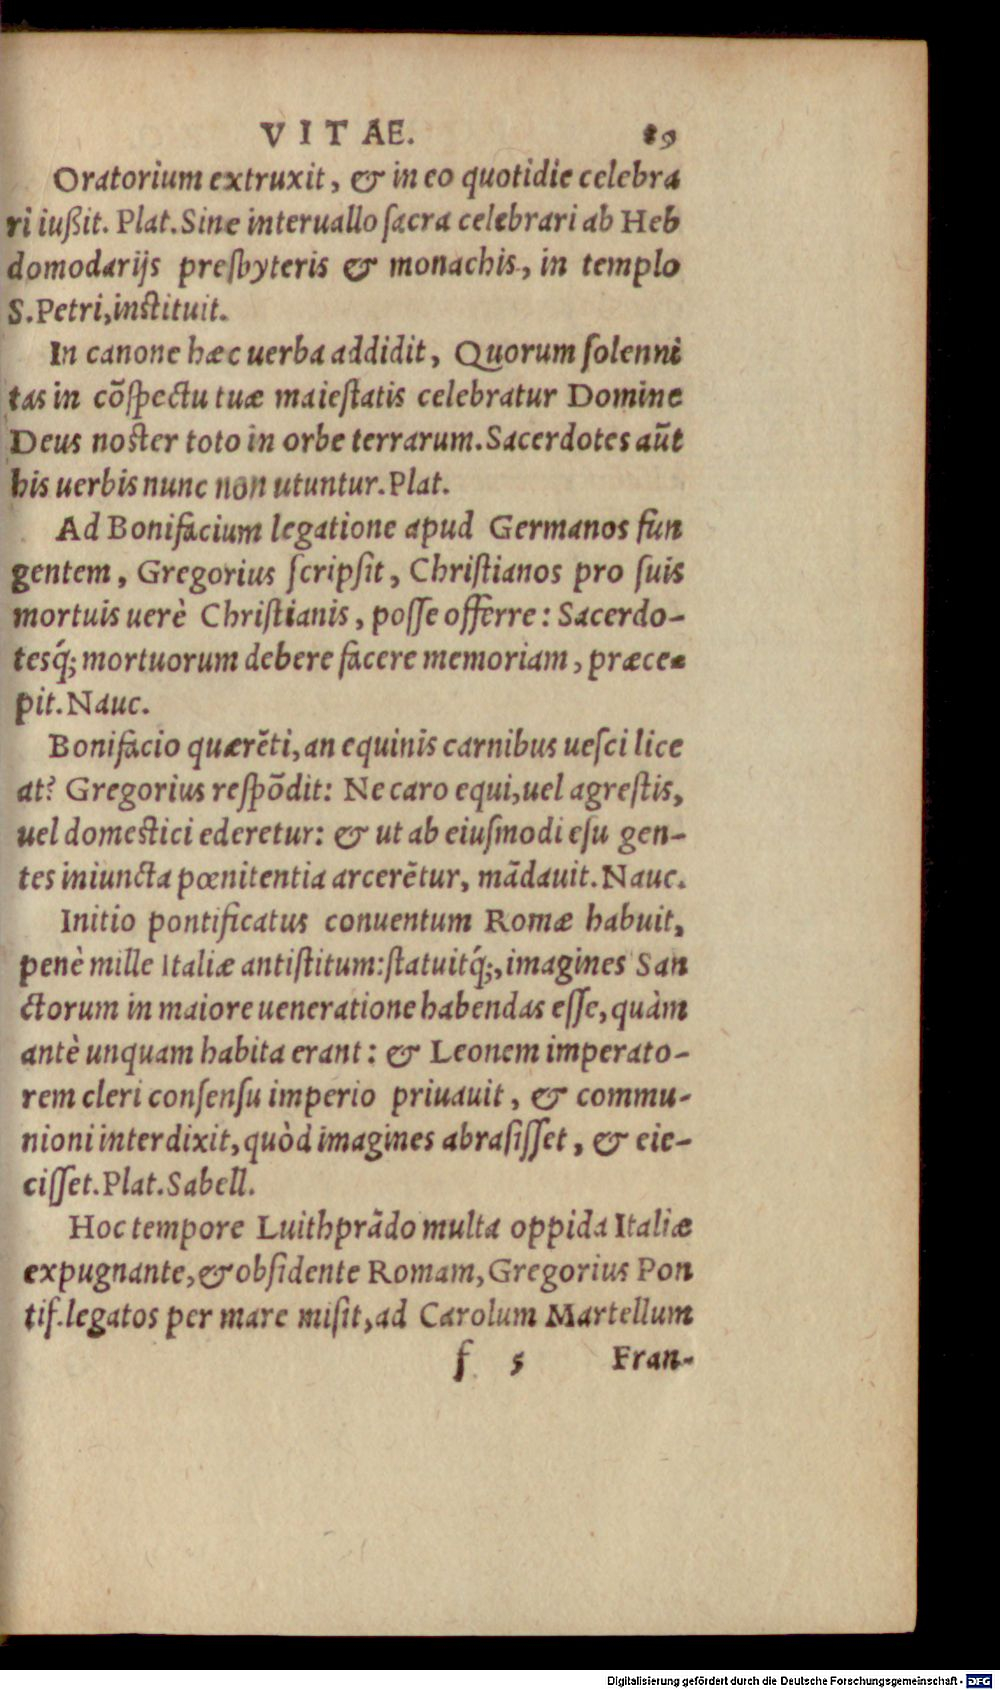 VITAE. 89
Oratorium extruxit, & in eo quotidie celebra
ri iußit. Plat. Sine interuallo ſacra celebrari ab Heb
domodarijs preſbyteris & monachis, in templo
S. Petri, inſtituit.
In canone hæc uerba addidit, Quorum ſolenni
tas in cõſpectu tuæ maieſtatis celebratur Domine
Deus noſter toto in orbe terrarum. Sacerdotes aũt
his uerbis nunc non utuntur. Plat.
Ad Bonifacium legatione apud Germanos fun
gentem, Gregorius ſcripſit, Chriſtianos pro ſuis
mortuis uerè Chriſtianis, poſſe offerre: Sacerdo-
tesq́; mortuorum debere facere memoriam, præce-
pit. Nauc.
Bonifacio quærẽti, an equinis carnibus ueſci lice
at? Gregorius reſpõdit: Ne caro equi, uel agreſtis,
uel domeſtici ederetur: & ut ab eiuſmodi eſu gen-
tes iniuncta pœnitentia arcerẽtur, mãdauit. Nauc.
Initio pontificatus conuentum Romæ habuit,
penè mille Italiæ antiſtitum: ſtatuitq́;, imagines San
ctorum in maiore ueneratione habendas eſſe, quàm
antè unquam habita erant: & Leonem imperato-
rem cleri conſenſu imperio priuauit, & commu-
nioni interdixit, quòd imagines abraſiſſet, & eie-
ciſſet. Plat. Sabell.
Hoc tempore Luithprãdo multa oppida Italiæ
expugnante, & obſidente Romam, Gregorius Pon
tif. legatos per mare miſit, ad Carolum Martellum
f 5 Fran-
Digitalisierung gefördert durch die Deutsche Forschungsgemeinschaft - DFG